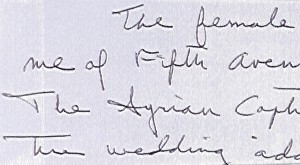 The female
me of Fifth Aven
The Syrian Capt
The wedding ado